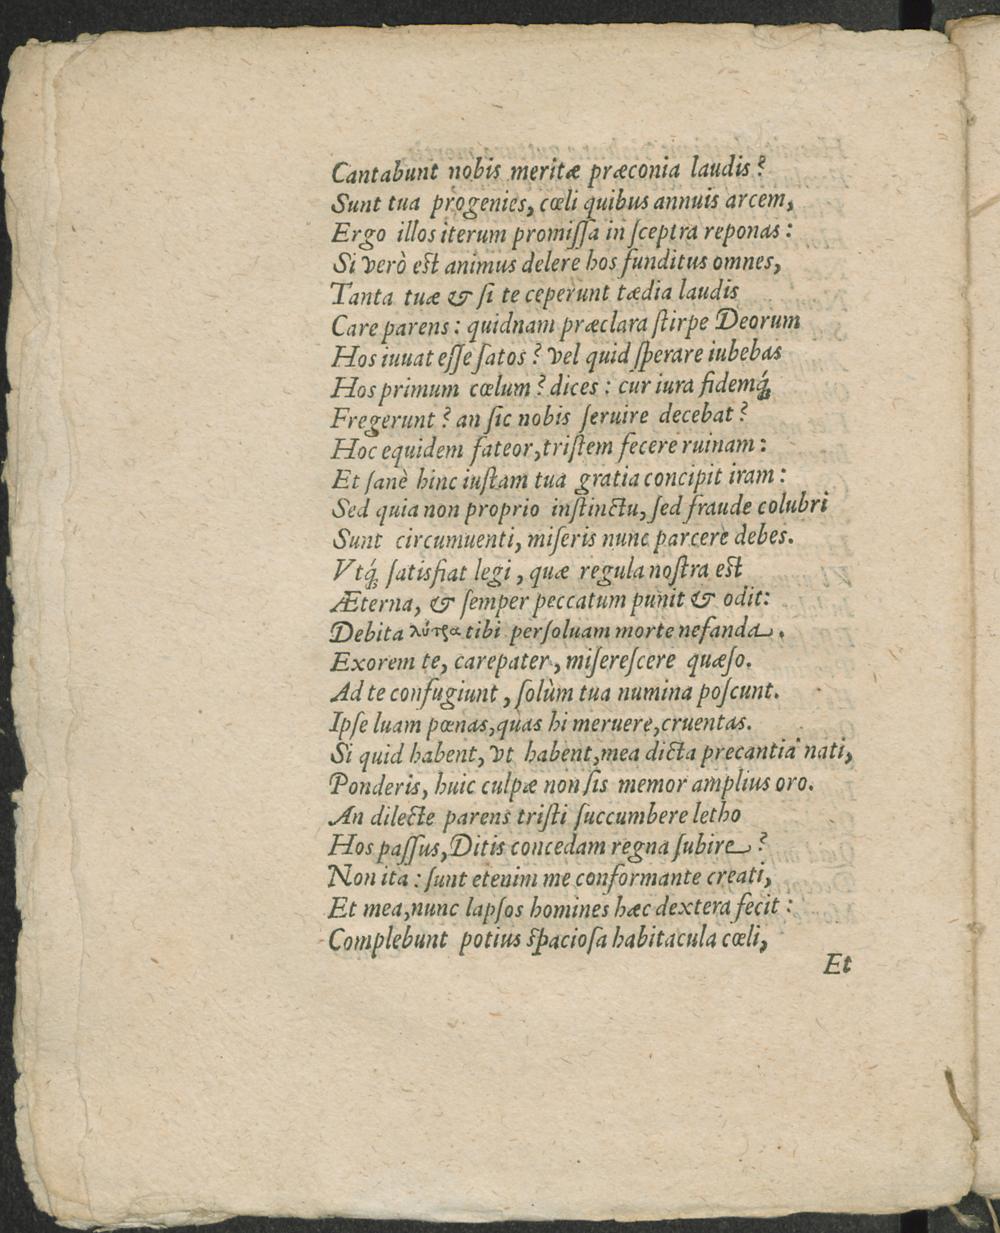 Cantabunt nobis meritæ præconia laudis?
Sunt tua progenies, cœli quibus annuis arcem,
Ergo illos iterum promiſſa in ſceptra reponas:
Si verò eſt animus delere hos funditus omnes,
Tanta tuæ & ſi te ceperunt tædia laudis
Care parens: quidnam præclara ſtirpe Deorum
Hos iuuat eſſe ſatos? vel quid ſperare iubebas
Hos primum cœlum? dices: cur iura fidemq́;
Fregerunt? an ſic nobis ſeruire decebat?
Hoc equidem fateor, triſtem fecere ruinam:
Et ſanè hinc iuſtam tua gratia concipit iram:
Sed quia non proprio inſtinctu, ſed fraude colubri
Sunt circumuenti, miſeris nunc parcere debes.
Vtq́; ſatisfiat legi, quæ regula noſtra eſt
Æterna, & ſemper peccatum punit & odit:
Debita λύτρα tibi perſoluam morte nefanda.
Exorem te, care pater, miſereſcere quæſo.
Ad te confugiunt, ſolùm tua numina poſcunt.
Ipſe luam pœnas, quas hi meruere, cruentas.
Si quid habent, vt habent, mea dicta precantia nati,
Ponderis, huic culpæ non ſis memor amplius oro.
An dilecte parens triſti ſuccumbere letho
Hos paſſus, Ditis concedam regna ſubire?
Non ita: ſunt etenim me conformante creati,
Et mea, nunc lapſos homines hæc dextera fecit:
Complebunt potius ſpacioſa habitacula cœli,
Et